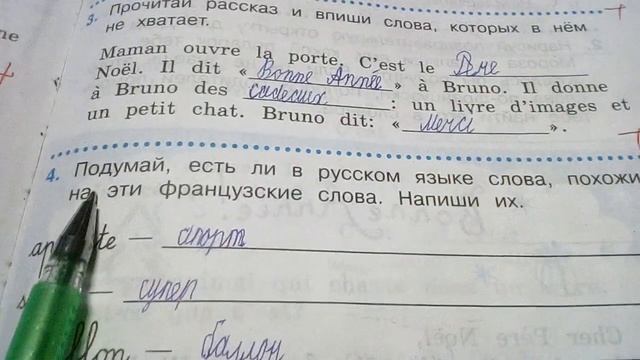 3. Прочитай рассказ и впиши слова, которых в нём
не хватает.
Maman ouvre la porte. C'est le
Noël. Il dit « Bonne Année » à Bruno. Il donne
à Bruno des cadeaux : un livre d'images et
un petit chat. Bruno dit: « Merci ».
4. Подумай, есть ли в русском языке слова, похожи
на эти французские слова. Напиши их.
— спорт
— супер
— баллон
Cher Père Noël,